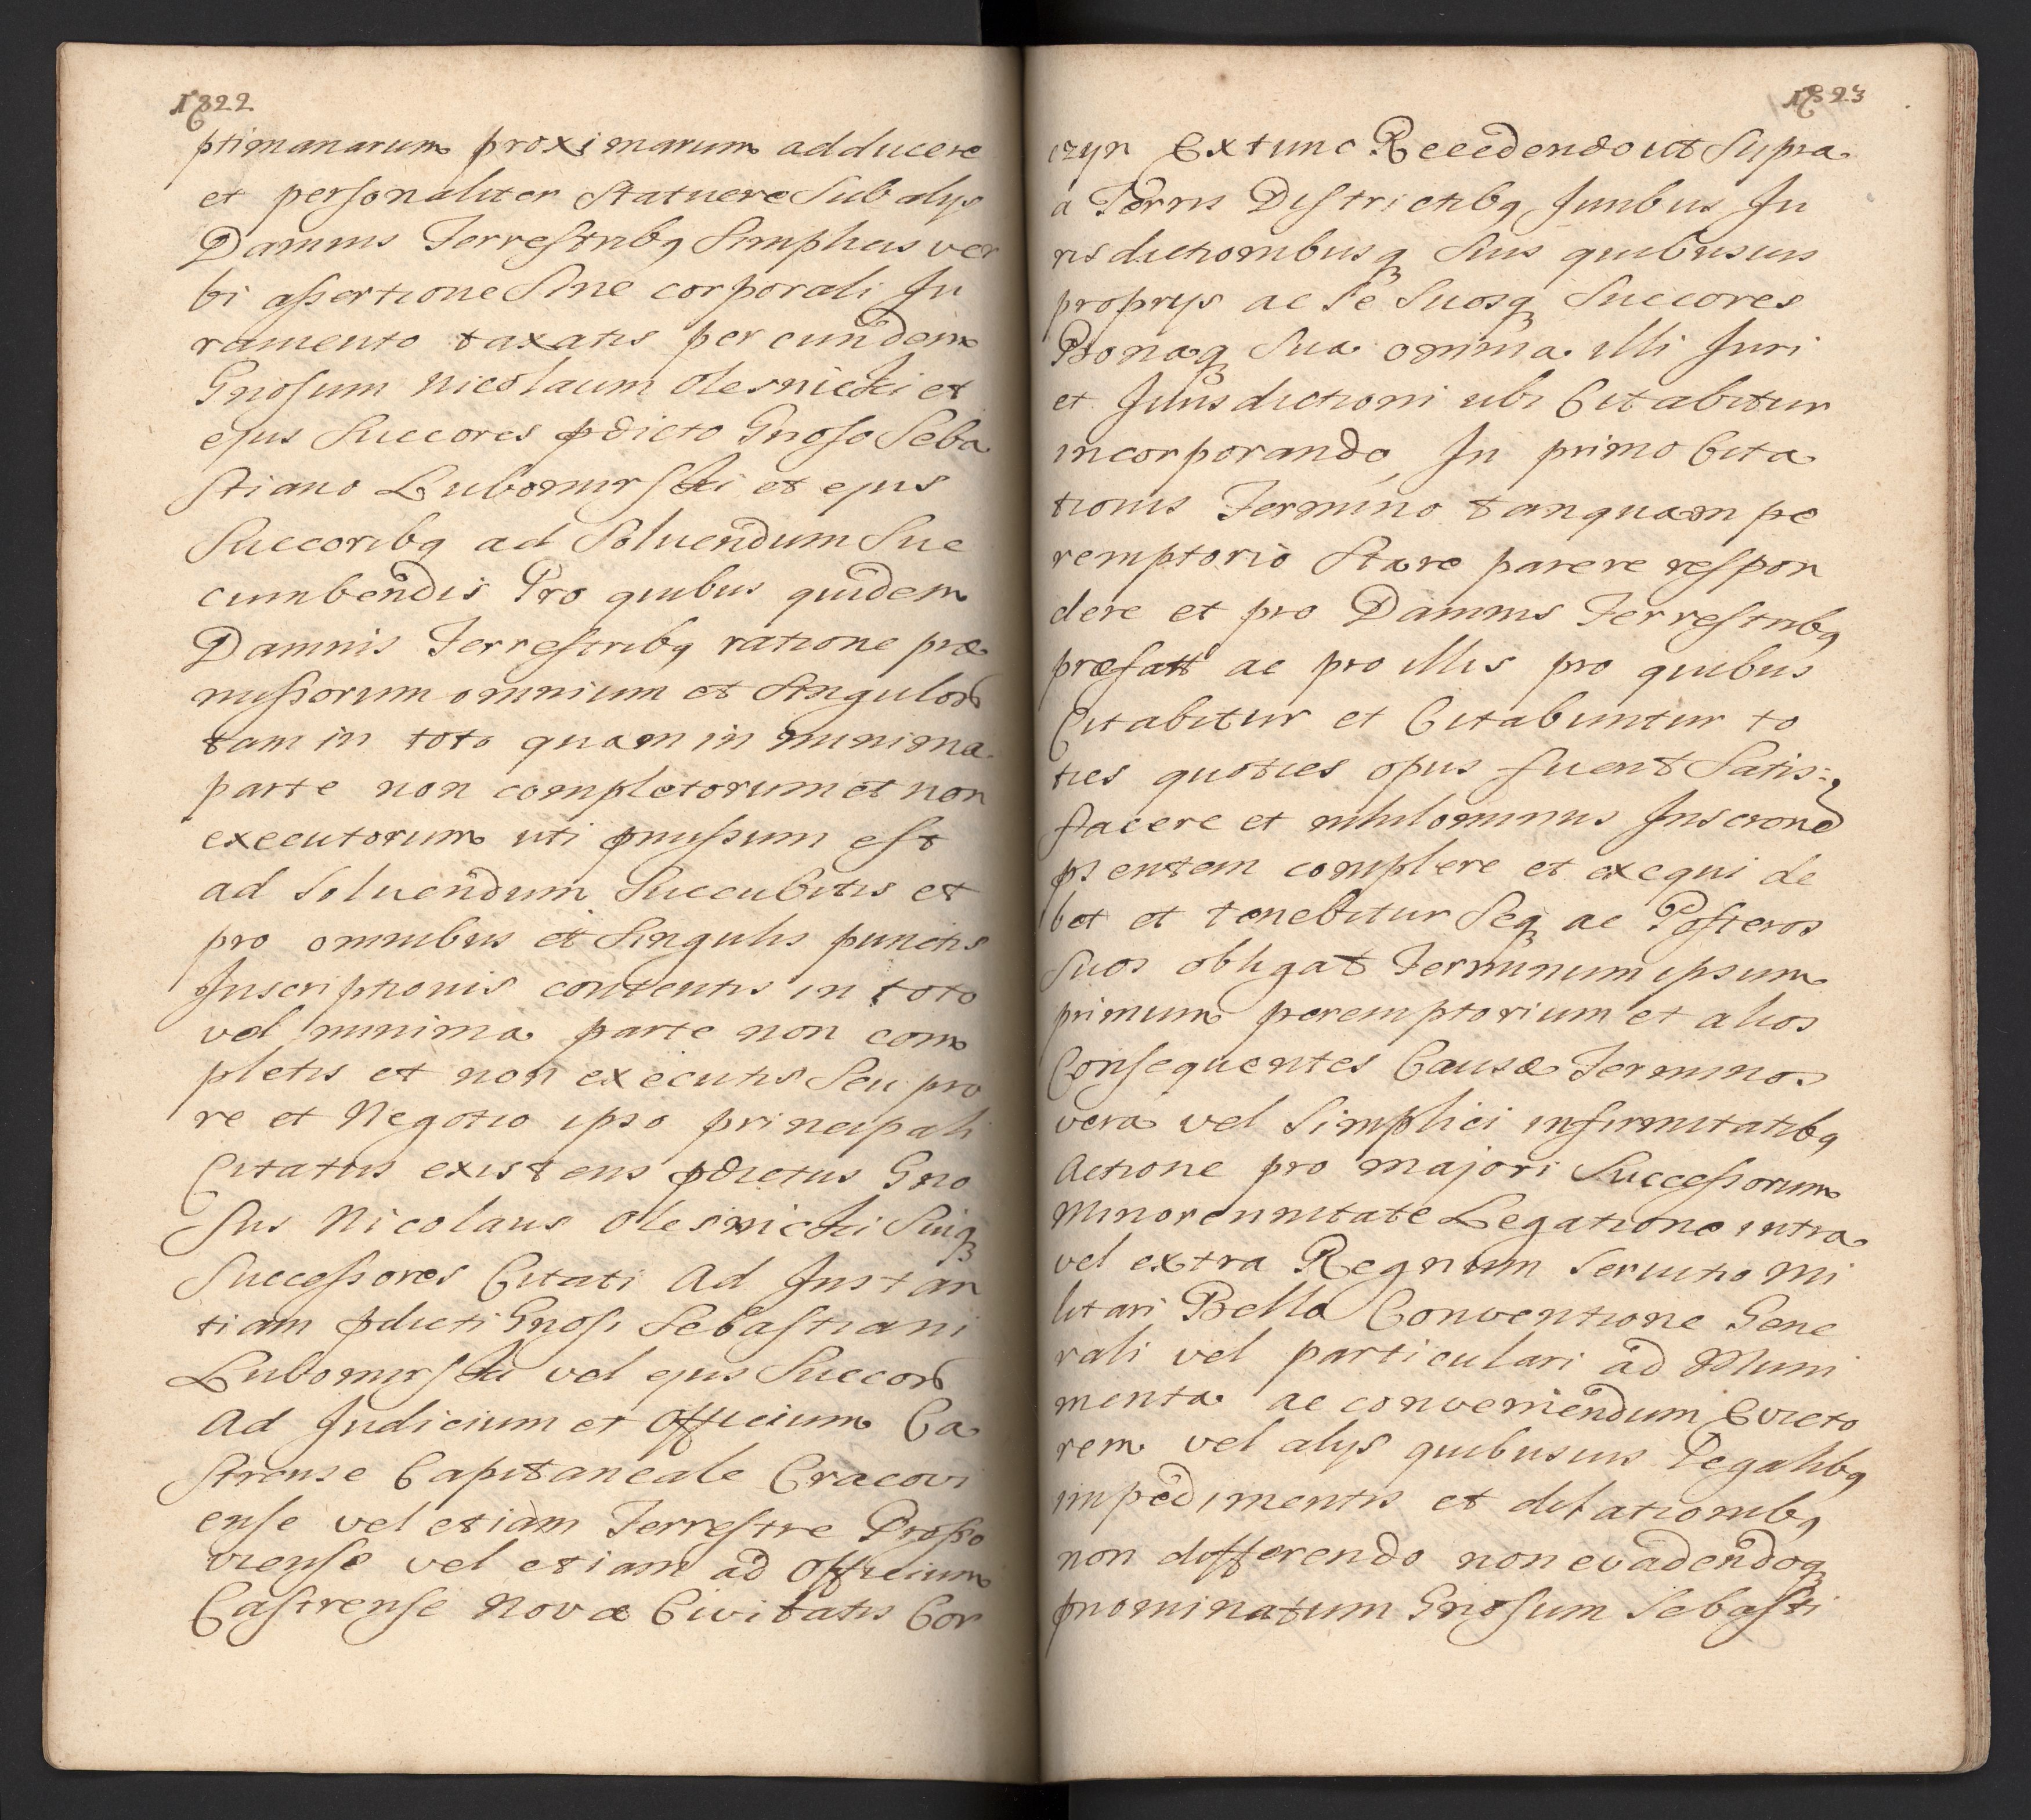 1822
ptimanarum proximarum adducere
et personaliter statuere Sub alys
Damnis Terrestribq Simplicis ver
bi assertione Sine corporali Ju
ramento taxatis per eundem
Gnosum Nicolaum Olesnicki et
ejus Succores pdicto Gnoso Seba
stiano Lubomirski et ejus
Succoribq ad Soluendum Suc
cumbendis Pro quibus quidem
Damnis Terrestribq ratione præ
missorum omnium et Singulor
tam in toto quam in minima
parte non completorum et non
executorum uti pmissum est
ad Soluendum Succubitis et
pro omnibus et Singulis punctis
Inscriptionis contentis in toto
vel minima parte non com
pletis et non executis Seu pro
re et Negotio ipso principali
Citatus existens pdictus Gno
sus Nicolaus Olesnicki Suiq
Successores Citati Ad Instan
tiam pdicti Gnosi Sebastiani
Lubomirski vel ejus Succor
Ad Judicium et Officium Ca
strense Capitaneale Cracovi
ense vel etiam Terrestre Prosso
viense vel etiam ad Officium
Castrense Novæ Civitatis Cor
1823
czyn Extunc Recedendo ut Supra
a Terris Districtibq Juribus Ju
risdictionibusq Suis quibusuis
proprys ac Se Suosq Succores
Bonaq Sua omnia illi Juri
et Jurisdictioni ubi Citabitur
incorporando, In primo Cita
tionis Termino tanquam pe
remptorio Stare parere respon
dere et pro Damnis Terrestribq
præfatt ac pro illis pro quibus
Citabitur et Citabuntur to
ties quoties opus fuerit Satis:
facere et nihilominus Inscrone
psentem complere et exequi de
bet et tenebitur Seq ac Posteros
Suos obligat Terminum ipsum
primum peremptorium et alios
Consequentes Causæ Terminos
vera vel Simplici infirmitatibq
Actione pro majori Successorum
Minorennitate Legatione intra
vel extra Regnum Seruitio Mi
litari Bello Conventione Gene
rali vel particulari ad Muni
menta ac conveniendum Evicto
rem vel alys quibusuis Legalibq
impedimentis et dilationibq
non differendo non evadendoq
pnominatum Gnosum Sebasti